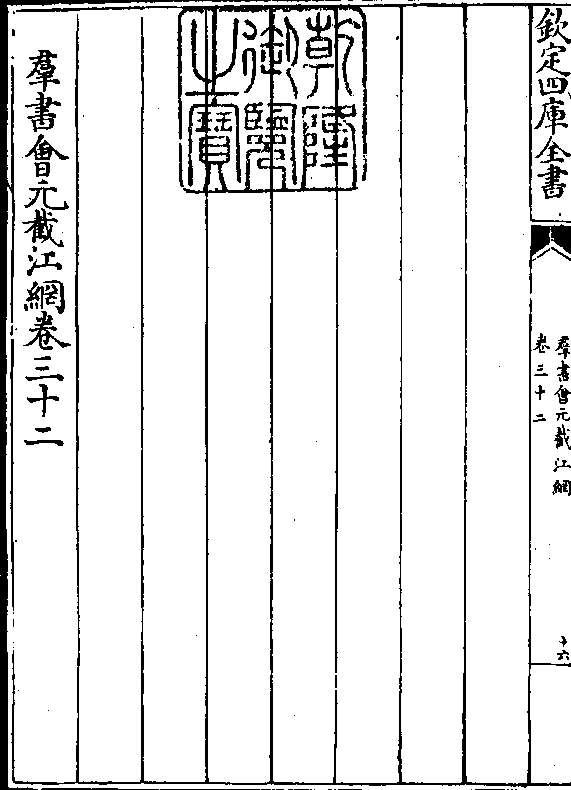 欽定四庫全書
群書會元截江網
卷三十二
十六
乾隆
御覽
之寶
羣書會元截江網卷三十二